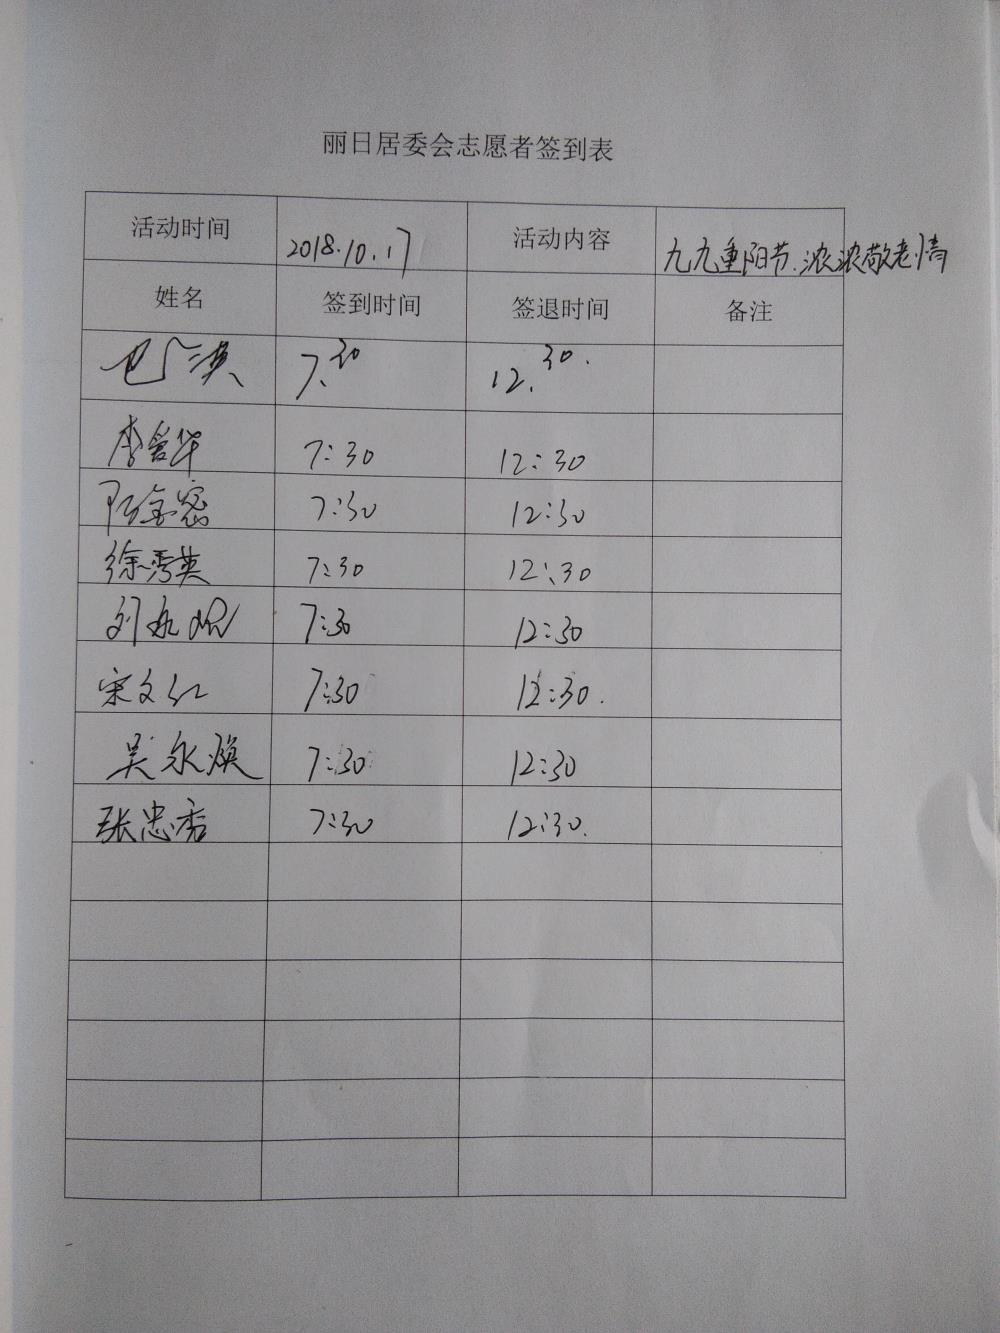 丽日居委会志愿者签到表
活动时间 2018.10.17 活动内容 九九重阳节.浓浓敬老情
姓名 签到时间 签退时间 备注
7.30 12.30.
李爱华 7:30 12:30
7:30 12:30
徐秀英 7:30 12:30
刘 7:30 12:30
宋文仁 7:30 12:30.
吴永焕 7:30 12:30
张忠秀 7:30 12:30.